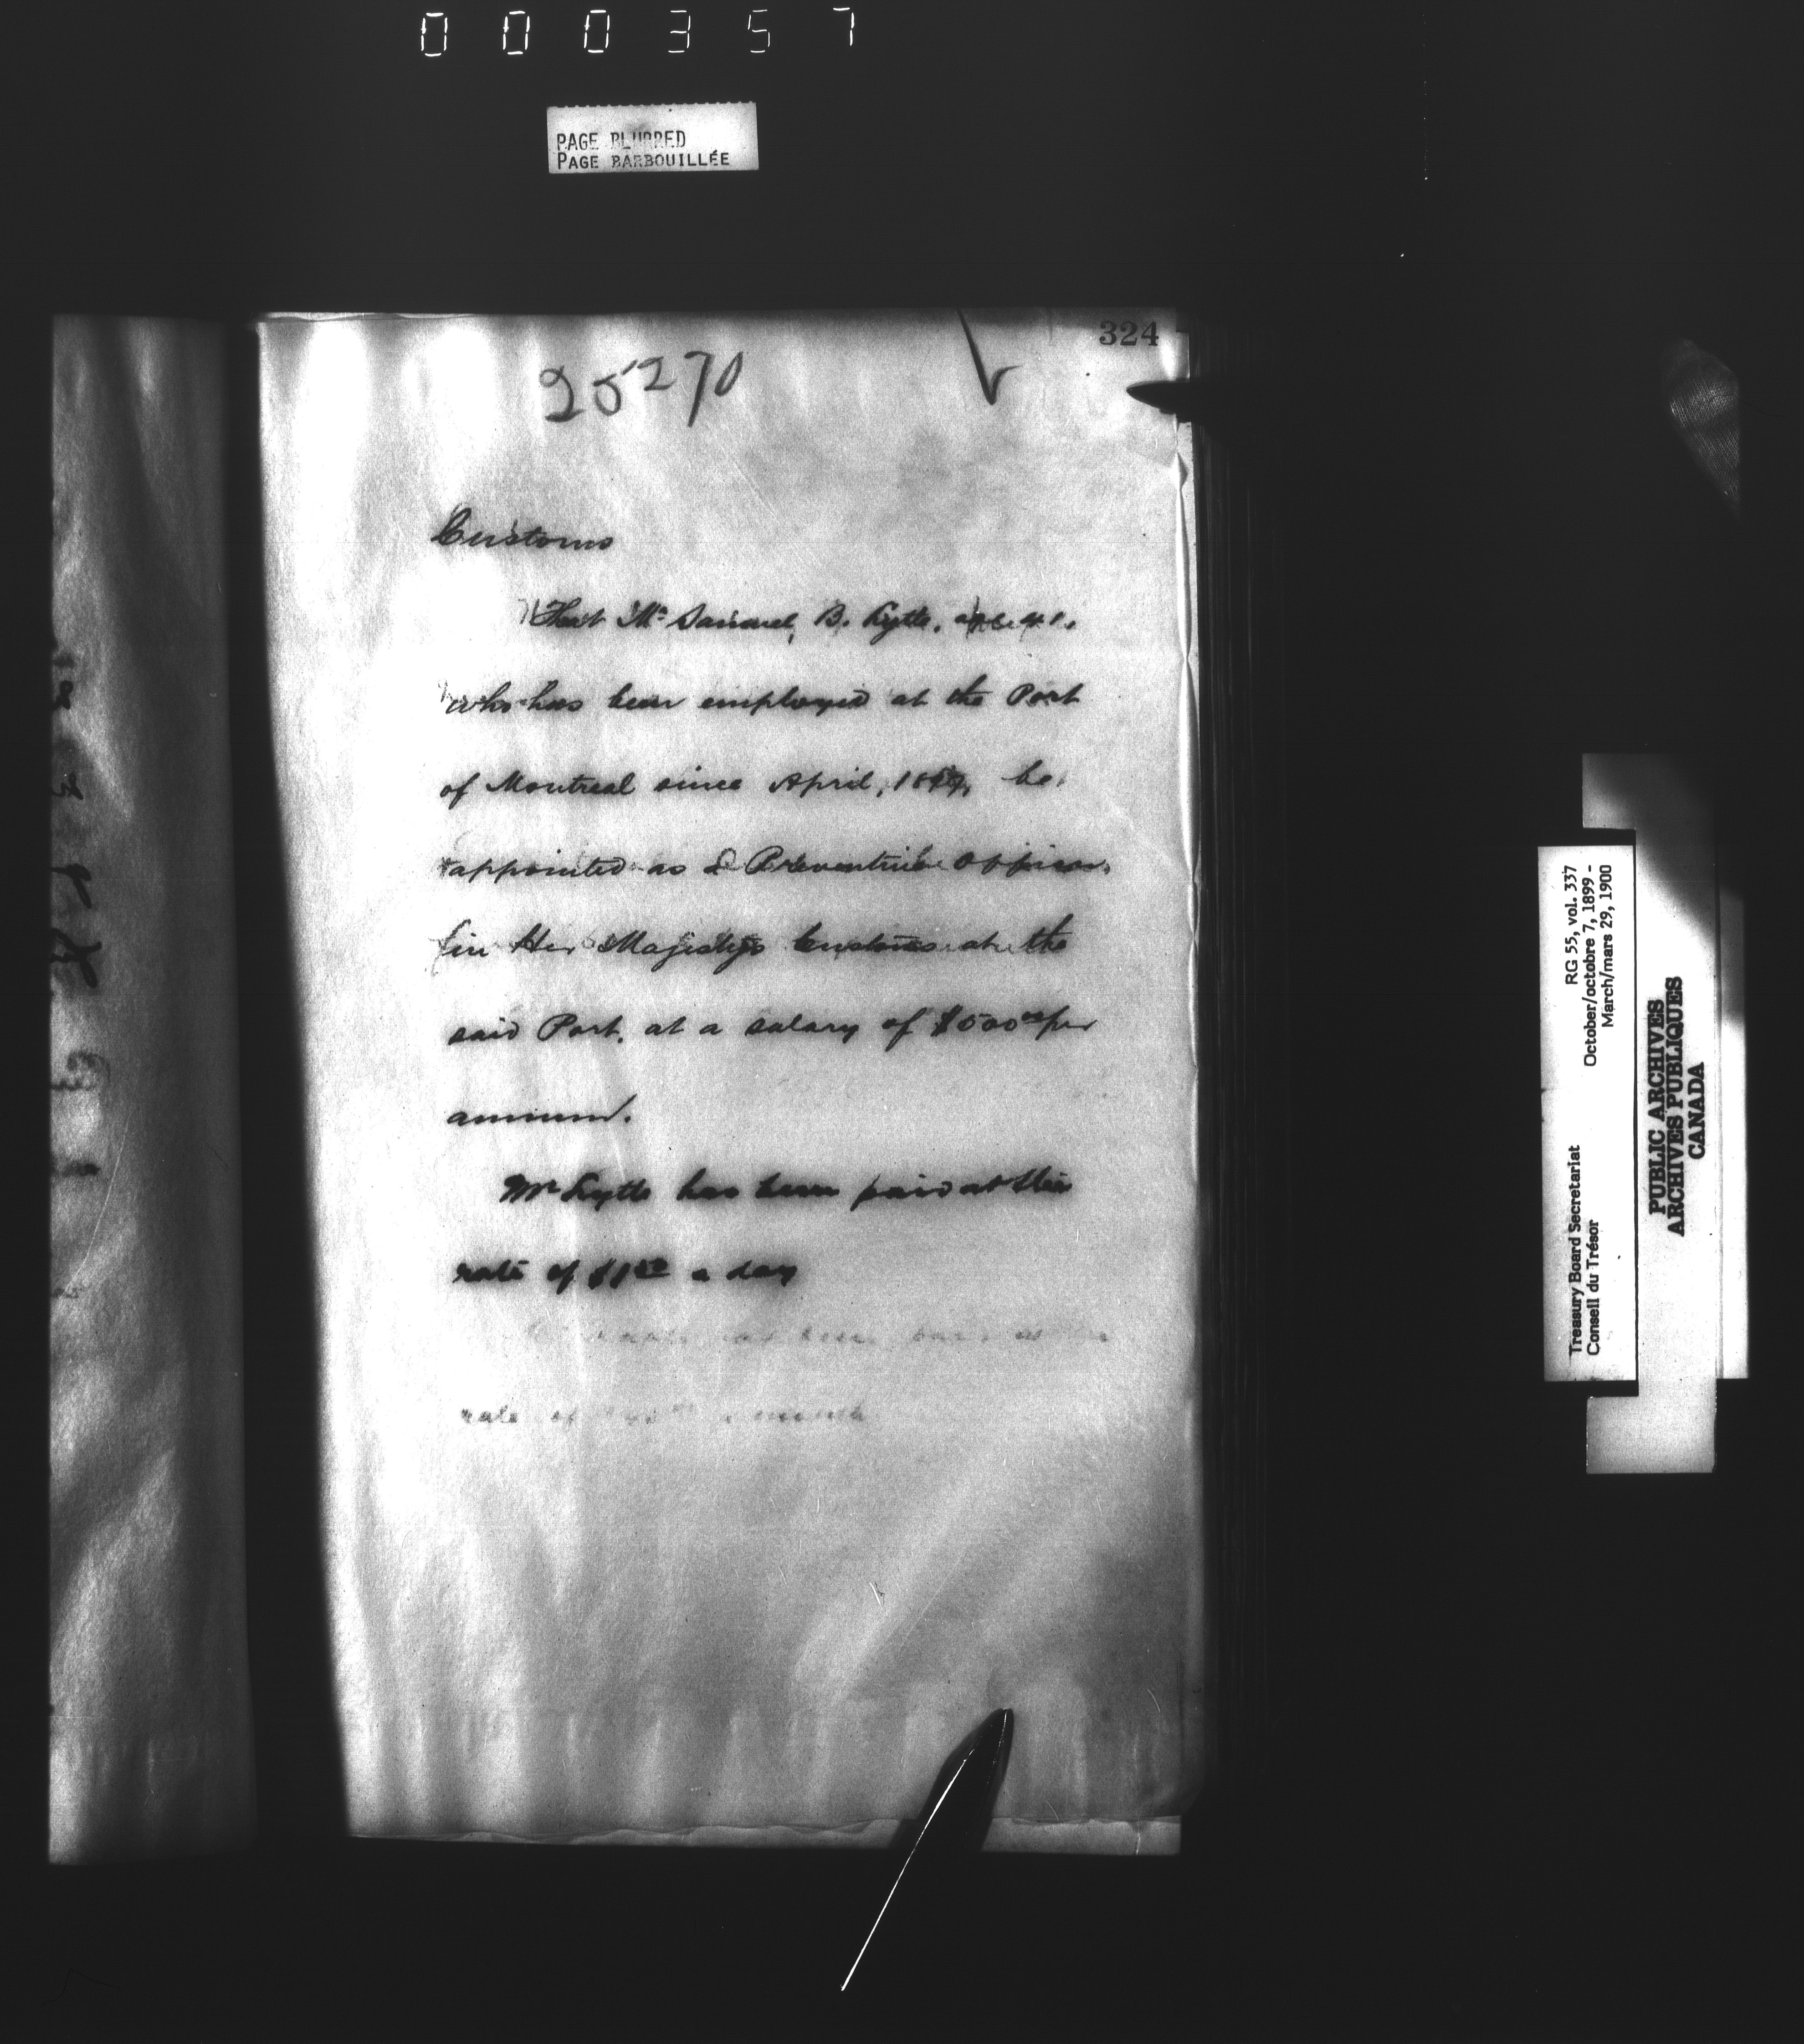 000357
PAGE BLURRED
PAGE BARBOUILLÉE
324
25270
Customs
That Mr Samuel B. Lytle, age 41.
who has been employed at the Port
of Montreal since April, 1899, be
appointed as a Preventive Officer
in Her Majesty's Customs at the
said Port, at a salary of $500.00 per
annum.
Mr Lytle has been paid at the
rate of a day
has been paid at the
rate of a month
RG 55, vol. 337
October/octobre 7, 1899 -
March/mars 29, 1900
Treasury Board Secretariat
Conseil du Trésor
PUBLIC ARCHIVES
ARCHIVES PUBLIQUES
CANADA